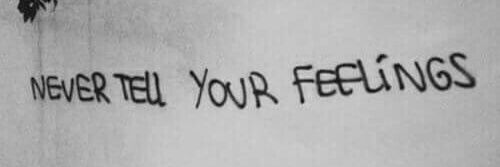 NEVER TELL YOUR FEELINGS